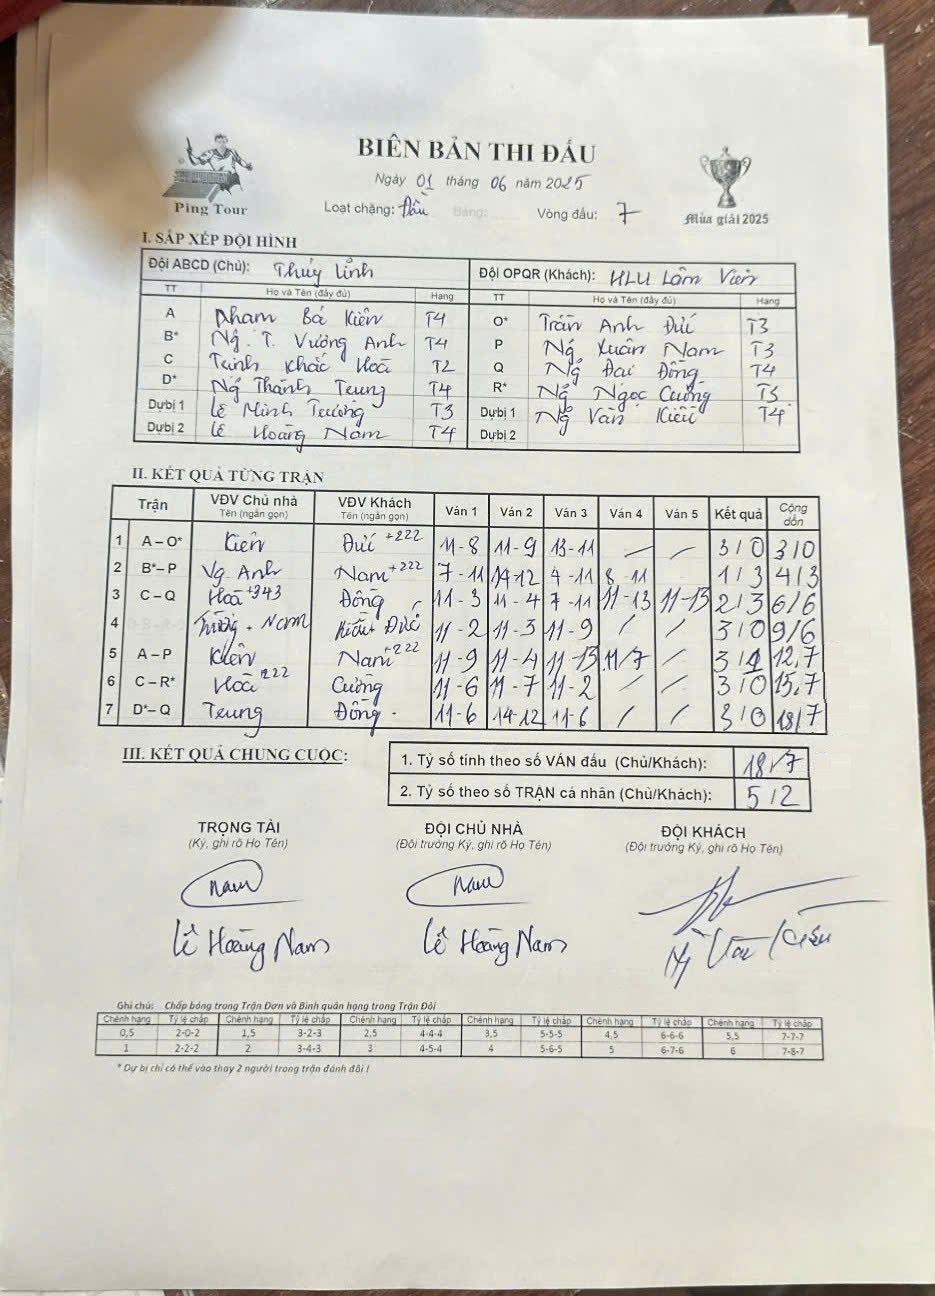 BIÊN BẢN THI ĐẤU
Ngày 01 tháng 06 năm 2025
Ping Tour
Loạt chặng: Đầu Bảng: ...... Vòng đấu: 7
Mùa giải 2025
I. SẮP XẾP ĐỘI HÌNH
Đội ABCD (Chủ): Thủy Linh Đội OPQR (Khách): HLU Lâm Viên
TT Họ và Tên (đầy đủ) Hạng TT Họ và Tên (đầy đủ) Hạng
A Phạm Bá Kiên T4 O* Trần Anh Đức T3
B* Ng. T. Vương Anh T4 P Ng Xuân Nam T3
C Trịnh Khắc Hoà T2 Q Ng Đại Đồng T4
D* Ng Thành Trung T4 R* Ng Ngọc Cường T3
Dự bị 1 Lê Minh Trường T3 Dự bị 1 Ng Văn Kiều T4
Dự bị 2 Lê Hoàng Nam T4 Dự bị 2
II. KẾT QUẢ TỪNG TRẬN
Trận VĐV Chủ nhà VĐV Khách Ván 1 Ván 2 Ván 3 Ván 4 Ván 5 Kết quả Cộng dồn
Tên (ngắn gọn) Tên (ngắn gọn)
1 A – O* Kiên Đức +222 11-8 11-9 13-11 / / 3/0 3/0
2 B*– P Vg. Anh Nam +222 7-11 14-12 4-11 8-11 1/3 4/3
3 C – Q Hoà +343 Đồng 11-3 11-4 7-11 11-13 11-13 2/3 6/6
4 Trường + Nam Kiều + Đức 11-2 11-3 11-9 / / 3/0 9/6
5 A – P Kiên Nam +222 11-9 11-4 11-13 11/7 / 3/1 12,7
6 C – R* Hoà 222 Cường 11-6 11-7 11-2 / / 3/0 15,7
7 D*– Q Trung Đồng 11-6 14-12 11-6 / / 3/0 18/7
III. KẾT QUẢ CHUNG CUỘC:
1. Tỷ số tính theo số VÁN đấu (Chủ/Khách): 18/7
2. Tỷ số theo số TRẬN cá nhân (Chủ/Khách): 5/2
TRỌNG TÀI ĐỘI CHỦ NHÀ ĐỘI KHÁCH
(Ký, ghi rõ Họ Tên) (Đội trưởng Ký, ghi rõ Họ Tên) (Đội trưởng Ký, ghi rõ Họ Tên)
Nam Nam
Lê Hoàng Nam Lê Hoàng Nam Ng Văn Kiều
Ghi chú: Chấp bóng trong Trận Đơn và Bình quân hạng trong Trận Đôi
Chênh hạng Tỷ lệ chấp Chênh hạng Tỷ lệ chấp Chênh hạng Tỷ lệ chấp Chênh hạng Tỷ lệ chấp Chênh hạng Tỷ lệ chấp Chênh hạng Tỷ lệ chấp
0,5 2-0-2 1,5 3-2-3 2,5 4-4-4 3,5 5-5-5 4,5 6-6-6 5,5 7-7-7
1 2-2-2 2 3-4-3 3 4-5-4 4 5-6-5 5 6-7-6 6 7-8-7
* Dự bị chỉ có thể vào thay 2 người trong trận đánh đôi !